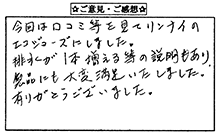 ☆ご意見・ご感想☆
今回は口コミ等を見てリンナイの
エコジョーズにしました。
排水が1本増える等の説明もあり、
製品にも大変満足いたしました。
有りがとうございました。